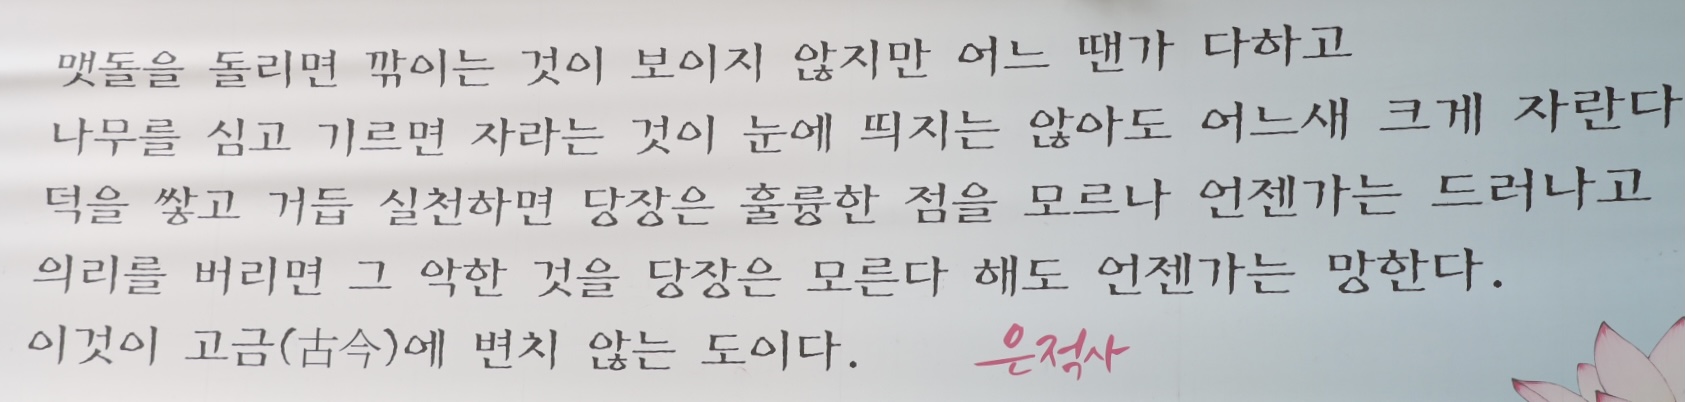 맷돌을 돌리면 깎이는 것이 보이지 않지만 어느 땐가 다하고
나무를 심고 기르면 자라는 것이 눈에 띄지는 않아도 어느새 크게 자란다
덕을 쌓고 거듭 실천하면 당장은 훌륭한 점을 모르나 언젠가는 드러나고
의리를 버리면 그 악한 것을 당장은 모른다 해도 언젠가는 망한다.
이것이 고금(古今)에 변치 않는 도이다. 은적사